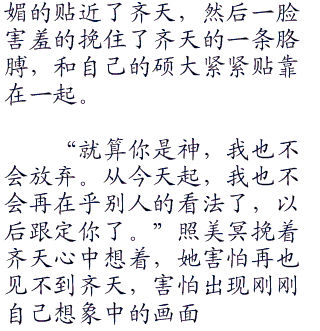 媚的贴近了齐天，然后一脸
害羞的挽住了齐天的一条胳
膊，和自己的硕大紧紧贴靠
在一起。
“就算你是神，我也不
会放弃。从今天起，我也不
会再在乎别人的看法了，以
后跟定你了。”照美冥挽着
齐天心中想着，她害怕再也
见不到齐天，害怕出现刚刚
自己想象中的画面